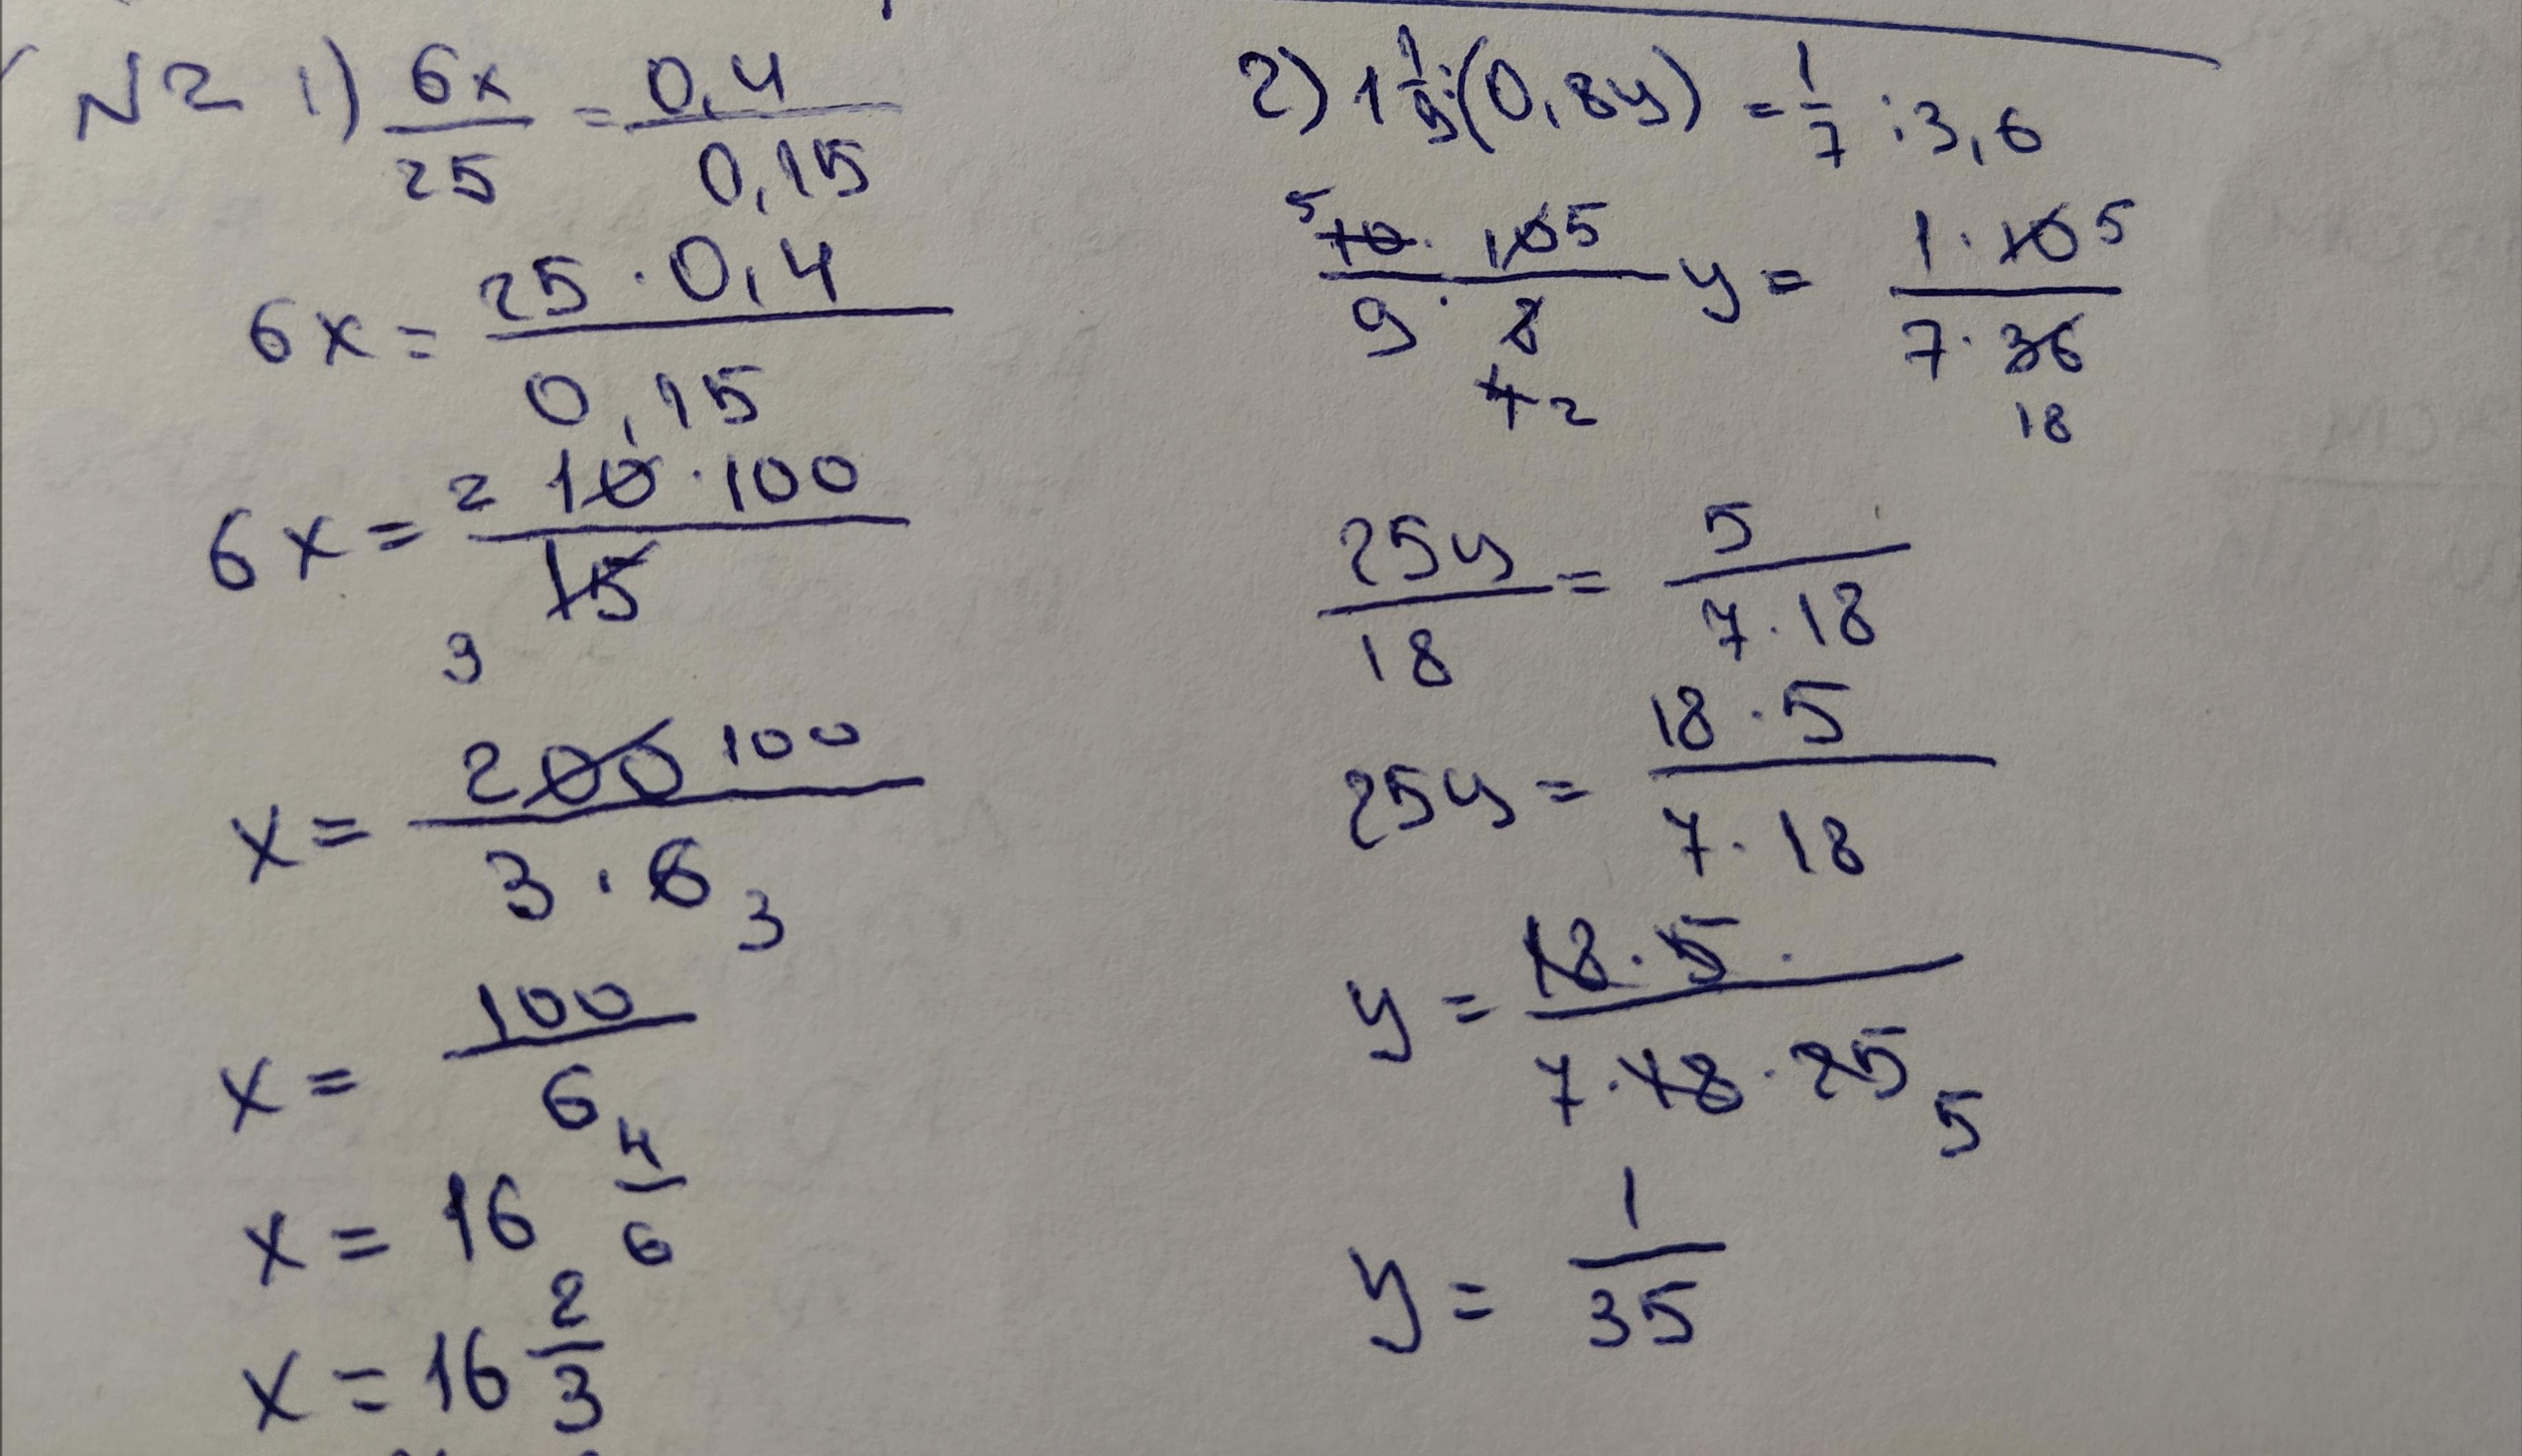 N2 1) 6x/25 = 0,4/0,15
6x = 25 · 0,4 / 0,15
6x = 2 10 · 100 / 15 3
x = 200 100 / 3 · 6 3
x = 100/6
x = 16 4/6
x = 16 2/3
2) 1 1/9 : (0,8y) = 1/7 : 3,6
5 10 · 10 5 / 9 · 8 4 2 y = 1 · 10 5 / 7 · 36 18
25y/18 = 5 / 7 · 18
25y = 18 · 5 / 7 · 18
y = 18 · 5 · / 7 · 18 · 25 5
y = 1/35